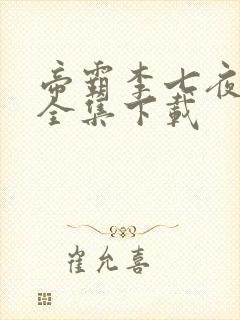 帝霸李七夜
全集下载
崔允喜